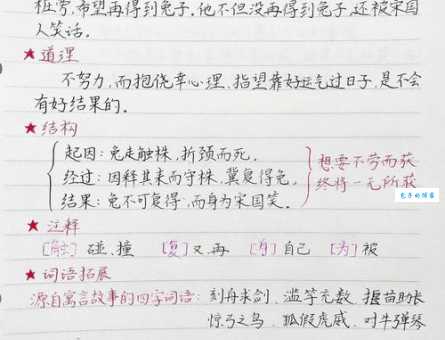 桩旁,希望再得到兔子。他不但没再得到兔子,还被宋国
人笑话。
★道理
不努力,而抱侥幸心理,指望靠好运气过日子,是不会
有好结果的。
★结构
起因:兔走触株,折颈而死。
经过:因释其耒而守株,冀复得兔。
结果:兔不可复得,而身为宋国笑。
想要不劳而获
终将一无所获
★注释
[触]碰、撞 [复]又、再 [身]自己 [为]被
★词语拓展
源自寓言故事的四字词语:刻舟求剑、滥竽充数、揠苗助长
惊弓之鸟、狐假虎威、对牛弹琴